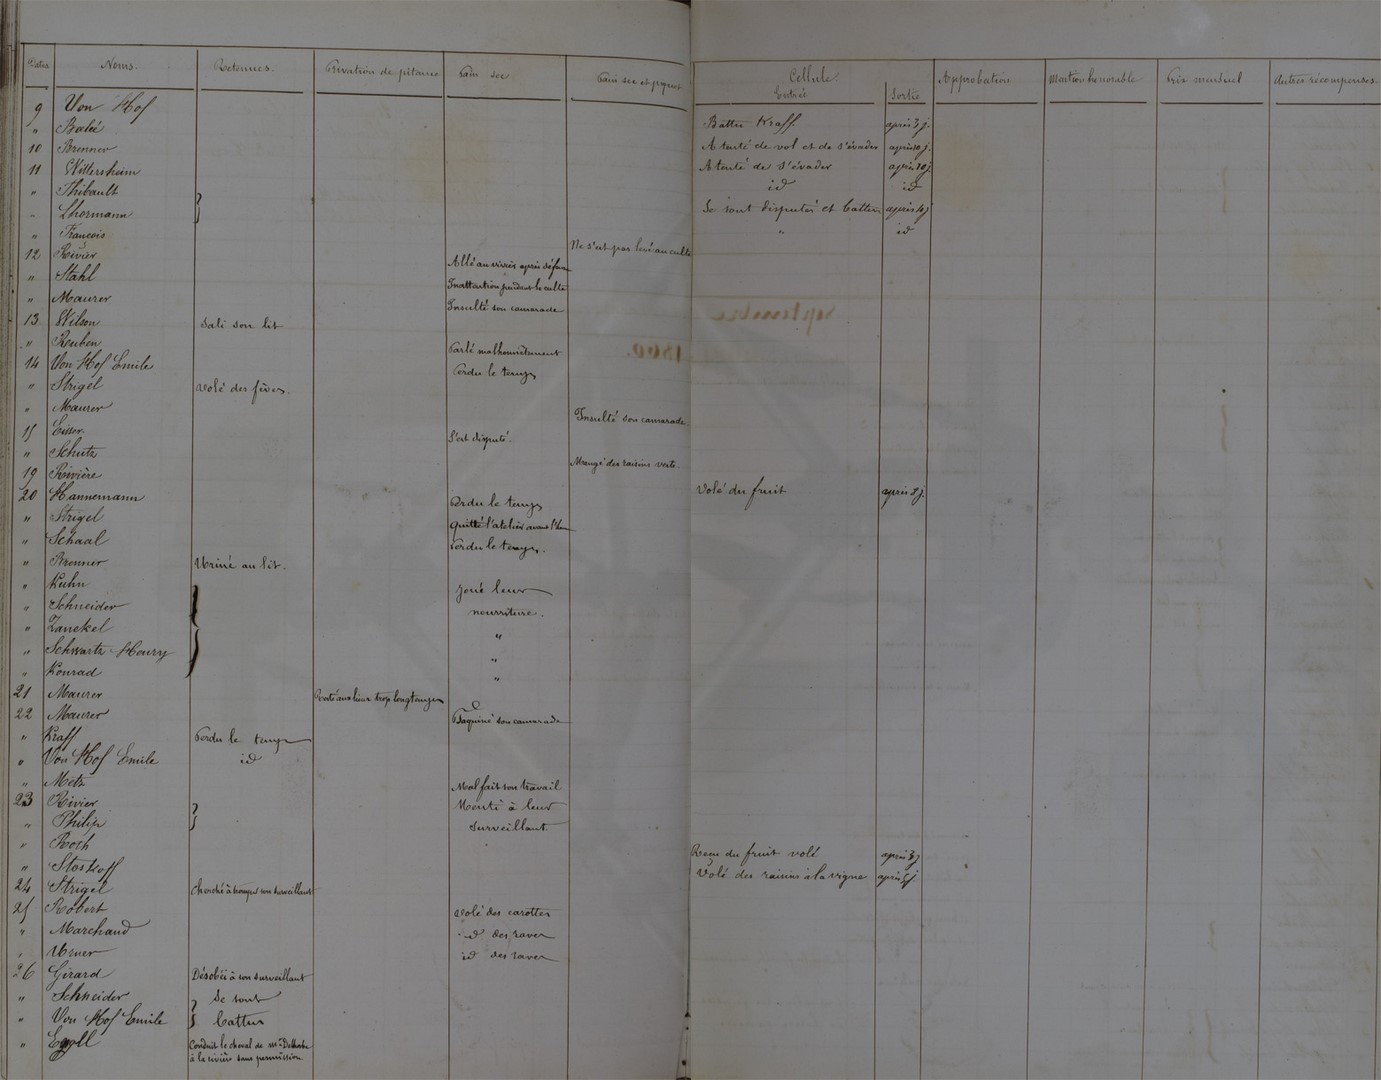 Dates Noms. Retenues. Privation de pitance Pain sec Pain sec et piquet Cellule. Entrée Sortie Approbation Mention honorable Prix mensuel Autres récompenses.
9 Von Hof Battu Kraff. après 3 j.
" Balée A tenté de vol et de s'évader après 10 j.
10 Brenner A tenté de s'évader après 10 j.
11 Wittersheim id id
" Thibault
" Lhermann Se sont disputés et battus après 4 j
" François " id
12 Rivier Ne s'est pas levé au culte
" Stahl Allé au vivier après défense
" Maurer Inattention pendant le culte
13 Wilson Sali son lit Insulté son camarade
" Reuben
14 Von Hof Emile Parlé malhonnêtement
" Strigel volé des fèves. Perdu le temps
" Maurer Insulté son camarade.
15 Eider S'est disputé.
" Schutz
19 Rivière Mangé des raisins verts.
20 Hannemann Volé du fruit après 8 j.
" Strigel Perdu le temps
" Schaal quitté l'atelier avant l'heure
" Brenner Uriné au lit. Perdu le temps.
" Kuhn
" Schneider Joué leur
" Zanckel nourriture.
" Schwartz Henry "
" Konrad "
"
21 Maurer Resté aux lieux trop longtemps
22 Maurer Taquiné son camarade
" Kraff Perdu le temps
" Von Hof Emile id
" Metz Mal fait son travail
23 Rivier Menti à leur
" Philip surveillant
" Roth
" Stoskoff Reçu du fruit volé après 3 j
24 Strigel Cherché à tromper son surveillant Volé des raisins à la vigne après 5 j
25 Robert volé des carottes
" Marchand id des raves
" Usner id des raves
26 Girard Désobéi à son surveillant
" Schneider Se sont
" Von Hof Emile battus
" Egll Conduit le cheval de Mr
à la rivière sans permission.
septembre
1860.